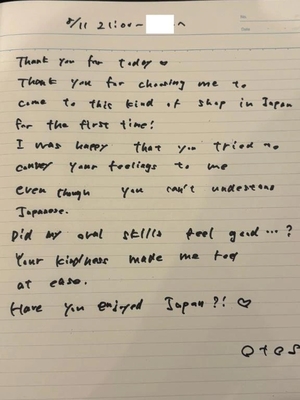 8/11 21:00~ へ
Thank you for today ♡
Thank you for choosing me to
come to this kind of shop in Japan
for the first time!
I was happy that you tried to
convey your feelings to me
even though you can't understand
Japanese.
Did my oral skills feel good…?
Your kindness made me feel
at ease.
Have you enjoyed Japan?! ♡